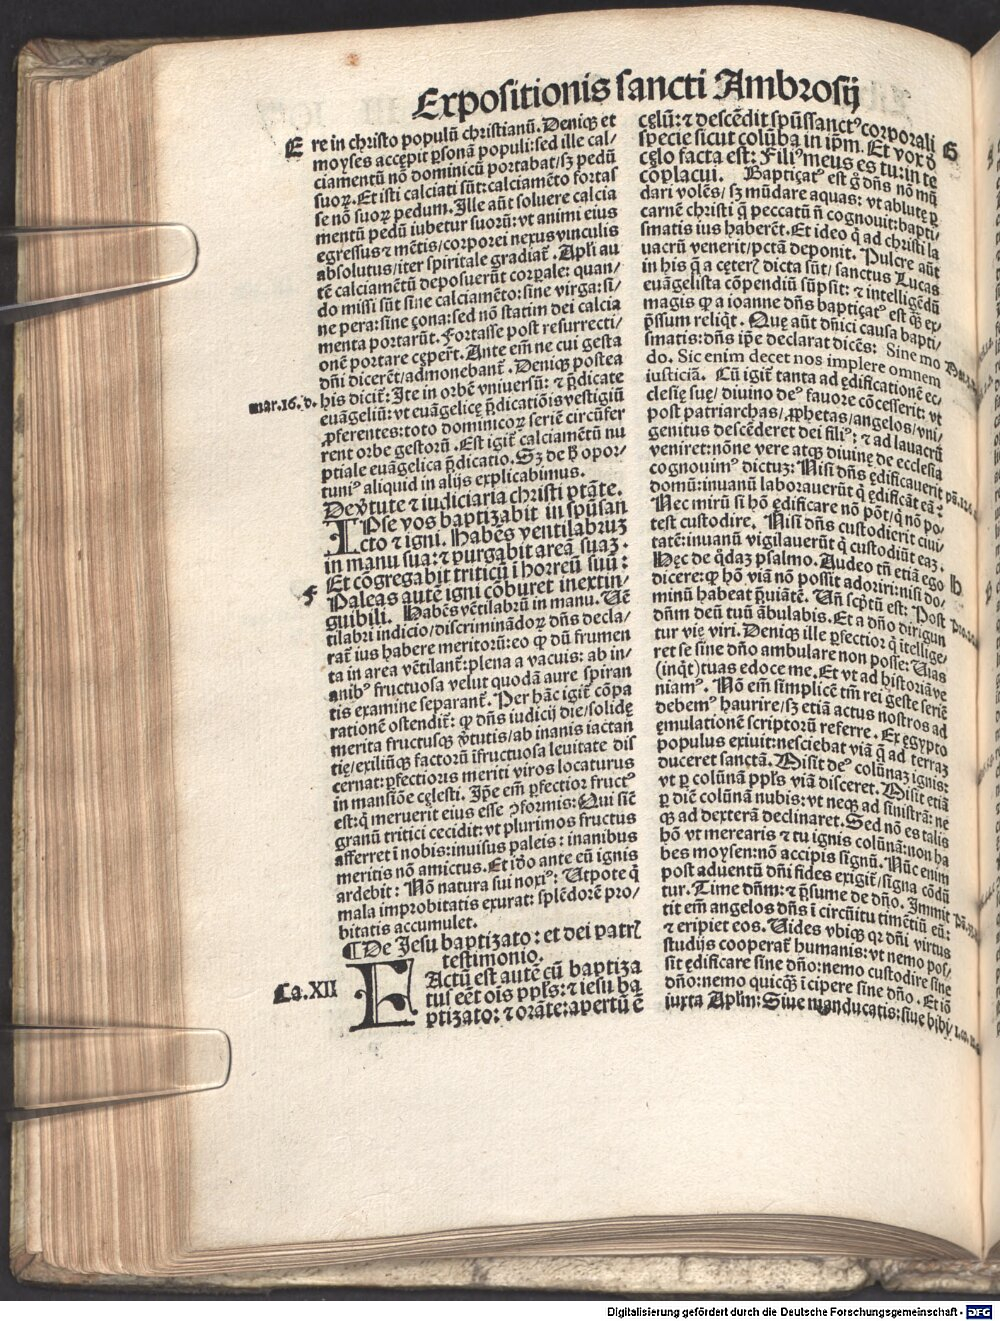 Expositionis sancti Ambrosij
E
re in christo populū christianū. Deniqꝫ et
moyses accepit psonā populi: sed ille cal/
ciamentū nō dominicū portabat/sꝫ pedū
suoꝝ. Et isti calciati sūt: calciamēto fortas
se nō suoꝝ pedum. Ille aūt soluere calcia
mentū pedū iubetur suorū: vt animi eius
egressus ⁊ mētis/corporei nexus vinculis
absolutus/iter spiritale gradiat̄. Apl̄i au
tē calciamētū deposuerūt corꝑale: quan/
do missi sūt sine calciamēto: sine virga: si/
ne pera: sine çona: sed nō statim dei calcia
menta portarūt. Fortasse post resurrecti/
onē portare cęꝑert. Ante em̄ ne cui gesta
dn̄i dicerēt/admonebant̄. Deniqꝫ postea
mar.16.d.
his dicit̄: Ite in orbē vniuersū: ⁊ p̄dicate
euāgeliū: vt euāgelicę p̄dicatiōis vestigiū
ꝓferentes: toto dominicoꝝ seriē circūfer
rent orbe gestorū. Est igit̄ calciamētū nu
ptiale euāgelica p̄dicatio. Sꝫ de ħ opor/
tuniꝰ aliquid in alijs explicabimus.
De v̄tute ⁊ iudiciaria christi ptāte.
IPse vos baptizabit in spūsan
cto ⁊ igni. Habēs ventilabruꝫ
in manu sua: ⁊ purgabit areā suaꝫ.
Et cōgregabit triticū ī horreū suū:
F
Paleas autē igni cōburet inextin/
guibili. Habēs vētilabrū in manu. Vē
tilabri indicio/discriminādoꝝ dn̄s decla/
rat̄ ius habere meritorū: eo ꝙ dū frumen
ta in area vētilant̄: plena a vacuis: ab in/
anibꝰ fructuosa velut quodā aure spiran
tis examine separant̄. Per hāc igit̄ cōpa
rationē ostendit̄: ꝙ dn̄s iudicij die/solidę
merita fructusqꝫ v̄tutis/ab inanis iactan
tię/exiliūqꝫ factorū īfructuosa leuitate dis
cernat: ꝑfectioris meriti viros locaturus
in mansiōe cęlesti. Ip̄e em̄ ꝑfectior fructꝰ
est: q̄ meruerit eius esse ɔformis: Qui sic̄
granū tritici cecidit: vt plurimos fructus
afferret ī nobis: inuisus paleis: inanibus
meritis nō amictus. Et iō ante eū ignis
ardebit: Nō natura sui noxiꝰ: Utpote q̄
mala improbitatis exurat: splēdorē pro/
bitatis accumulet.
¶De Jesu baptizato: et dei patr̄
testimonio.
Ca.XII
FActū est autē cū baptiza
tus eēt oīs ppl̄s: ⁊ iesu ba
ptizato: ⁊ orāte: apertū ē
cęlū: ⁊ descēdit spūssanctꝰ corporali
G
specie sicut colūba in ip̄m. Et vox d̄
cęlo facta est: Filiꝰ meus es tu: in te
cōplacui. Baptiçatꝰ est g̊ dn̄s nō mū
dari volēs/ sꝫ mūdare aquas: vt ablutę ꝑ
carnē christi q̄ peccatū n̄ cognouit: bapti/
smatis ius haberēt. Et ideo q̄ ad christi la
uacrū venerit/pctā deponit. Pulcre aūt
in his q̄ a cęter̄ dicta sūt/ sanctus Lucas
euāgelista cōpendiū sūpsit: ⁊ intelligēdū
magis ꝙ a ioanne dn̄s baptiçatꝰ est q̄ꝫ ex/
p̄ssum reliq̄t. Que aūt dn̄ici causa bapti/
smatis: dn̄s ip̄e declarat dicēs: Sine mo
do. Sic enim decet nos implere omnem
iusticiā. Cū igit̄ tanta ad ędificationē ec/
clesię suę/ diuino deꝰ fauore cōcesserit: vt
post patriarchas/ ꝓphetas/angelos/vni/
genitus descēderet dei filiꝰ: ⁊ ad lauacrū
veniret: nōne vere atqꝫ diuine de ecclesia
cognouimꝰ dictuꝫ: Nisi dn̄s ędificauerit
domū: inuanū laborauerūt q̄ ędificāt eā:
Nec mirū si hō ędificare nō pōt/q̄ nō po/
test custodire. Nisi dn̄s custodierit ciui/
tatē: inuanū vigilauerūt q̄ custodiūt eaꝫ.
Hęc de q̄daꝫ psalmo. Audeo tn̄ etiā ego
H
dicere: ꝙ hō viā nō possit adoriri: nisi do/
minū habeat p̄uiātē. Vn̄ scp̄tū est: Post
dn̄m deū tuū ābulabis. Et a dn̄o dirigun
tur vię viri. Deniqꝫ ille ꝑfectior q̄ itellige/
ret se sine dn̄o ambulare non posse: Vias
(inq̄t) tuas edoce me. Et vt ad historiā ve
niamꝰ. Nō em̄ simplicē tm̄ rei gestę seriē
debemꝰ haurire/ sꝫ etiā actus nostros ad
ęmulationē scriptorū referre. Ex ęgypto
populus exiuit: nesciebat viā q̄ ad terraꝫ
duceret sanctā. Misit deꝰ colūnaꝫ ignis:
vt ꝑ colūnā ppl̄s viā disceret. Misit etiā
ꝑ diē colūnā nubis: vt neqꝫ ad sinistrā: ne
qꝫ ad dexterā declinaret. Sed nō es talis
hō vt merearis ⁊ tu ignis colūnā: non ha
bes moysen: nō accipis signū. Nūc enim
post aduentū dn̄i fides exigit̄/signa cōdū
tur. Time dn̄m: ⁊ p̄sume de dn̄o. Immit
tit em̄ angelos dn̄s ī circūitu timētiū eū:
⁊ eripiet eos. Vides vbiqꝫ qꝛ dn̄i virtus
studijs cooperat̄ humanis: vt nemo pos/
sit ędificare sine dn̄o: nemo custodire sine
dn̄o: nemo quicqꝫ ī cipere sine dn̄o. Et iō
iuxta Apl̄m: Siue manducatis: siue bibi/
Digitalisierung gefördert durch die Deutsche Forschungsgemeinschaft - DFG